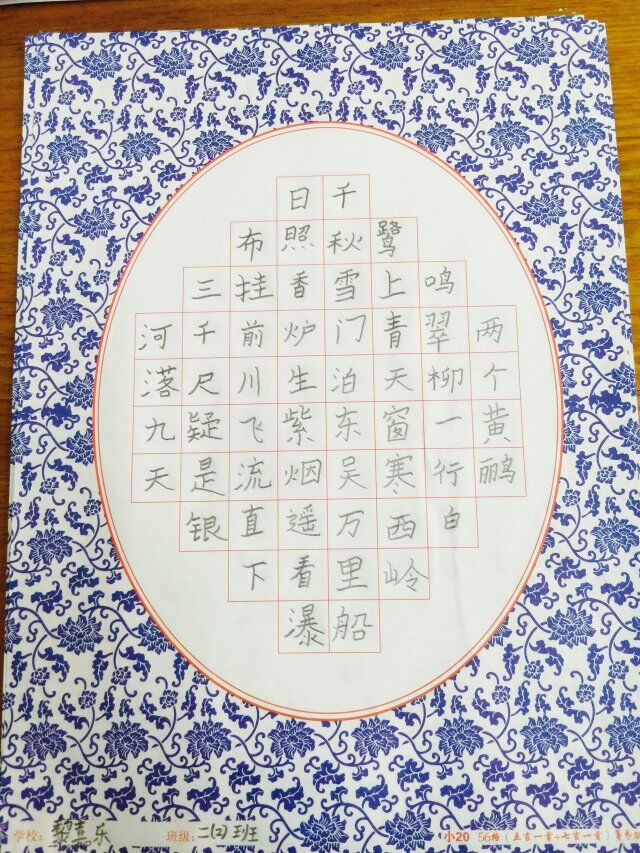 两个黄鹂
鸣翠柳一行白
鹭上青天窗寒西岭
千秋雪门泊东吴万里船
日照香炉生紫烟遥看瀑
布挂前川飞流直下
三千尺疑是银
河落九天
学校: 黎嘉乐 班级: 二(2)班 小20 56格（五言一首+七言一首）